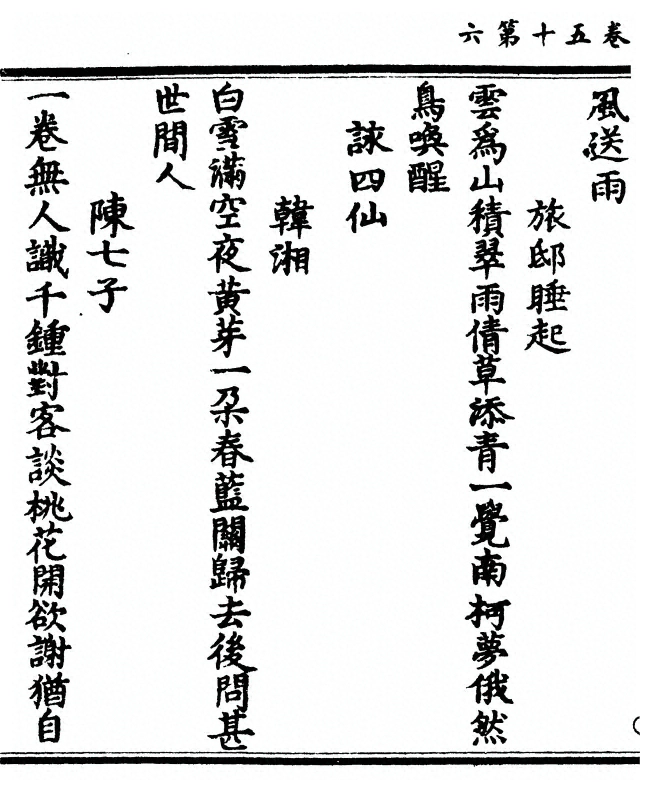 卷五十第六
風送雨
旅邸睡起
雲爲山積翠雨倩草添青一覺南柯夢俄然
鳥喚醒
詠四仙
韓湘
白雪滿空夜黃芽一朶春藍關歸去後問甚
世間人
陳七子
一卷無人識千鍾對客談桃花開欲謝猶自